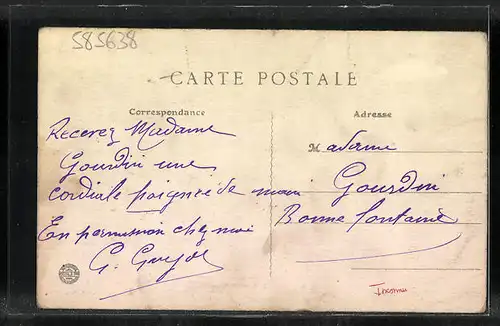 585638
CARTE POSTALE
Correspondance
Adresse
Recevez Madame
Gourdin une
cordiale poignée de main
En permission chez moi
G. Guyot
Madame
Gourdin
Bonne fontaine
Inconnu